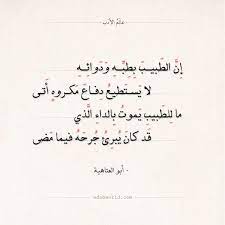 عالم الأدب
إنَّ الطَّبيبَ بِطِبِّهِ وَدَوائِهِ
لا يَستَطيعُ دِفاعَ مَكروهٍ أَتى
ما لِلطَبيبِ يَموتُ بِالداءِ الَّذي
قَد كانَ يُبرِئُ جُرحَهُ فيما مَضى
- أبو العتاهية
adabworld.com